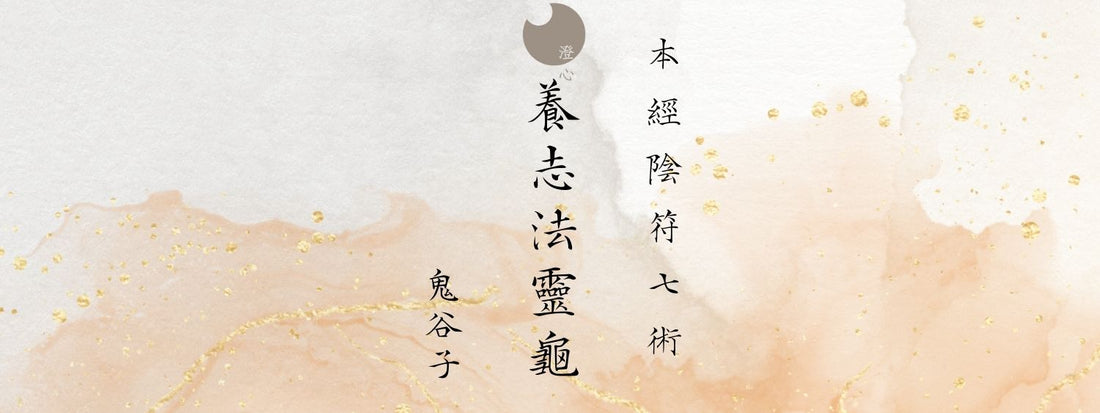 本經陰符七術
澄心
養志法靈龜
鬼谷子